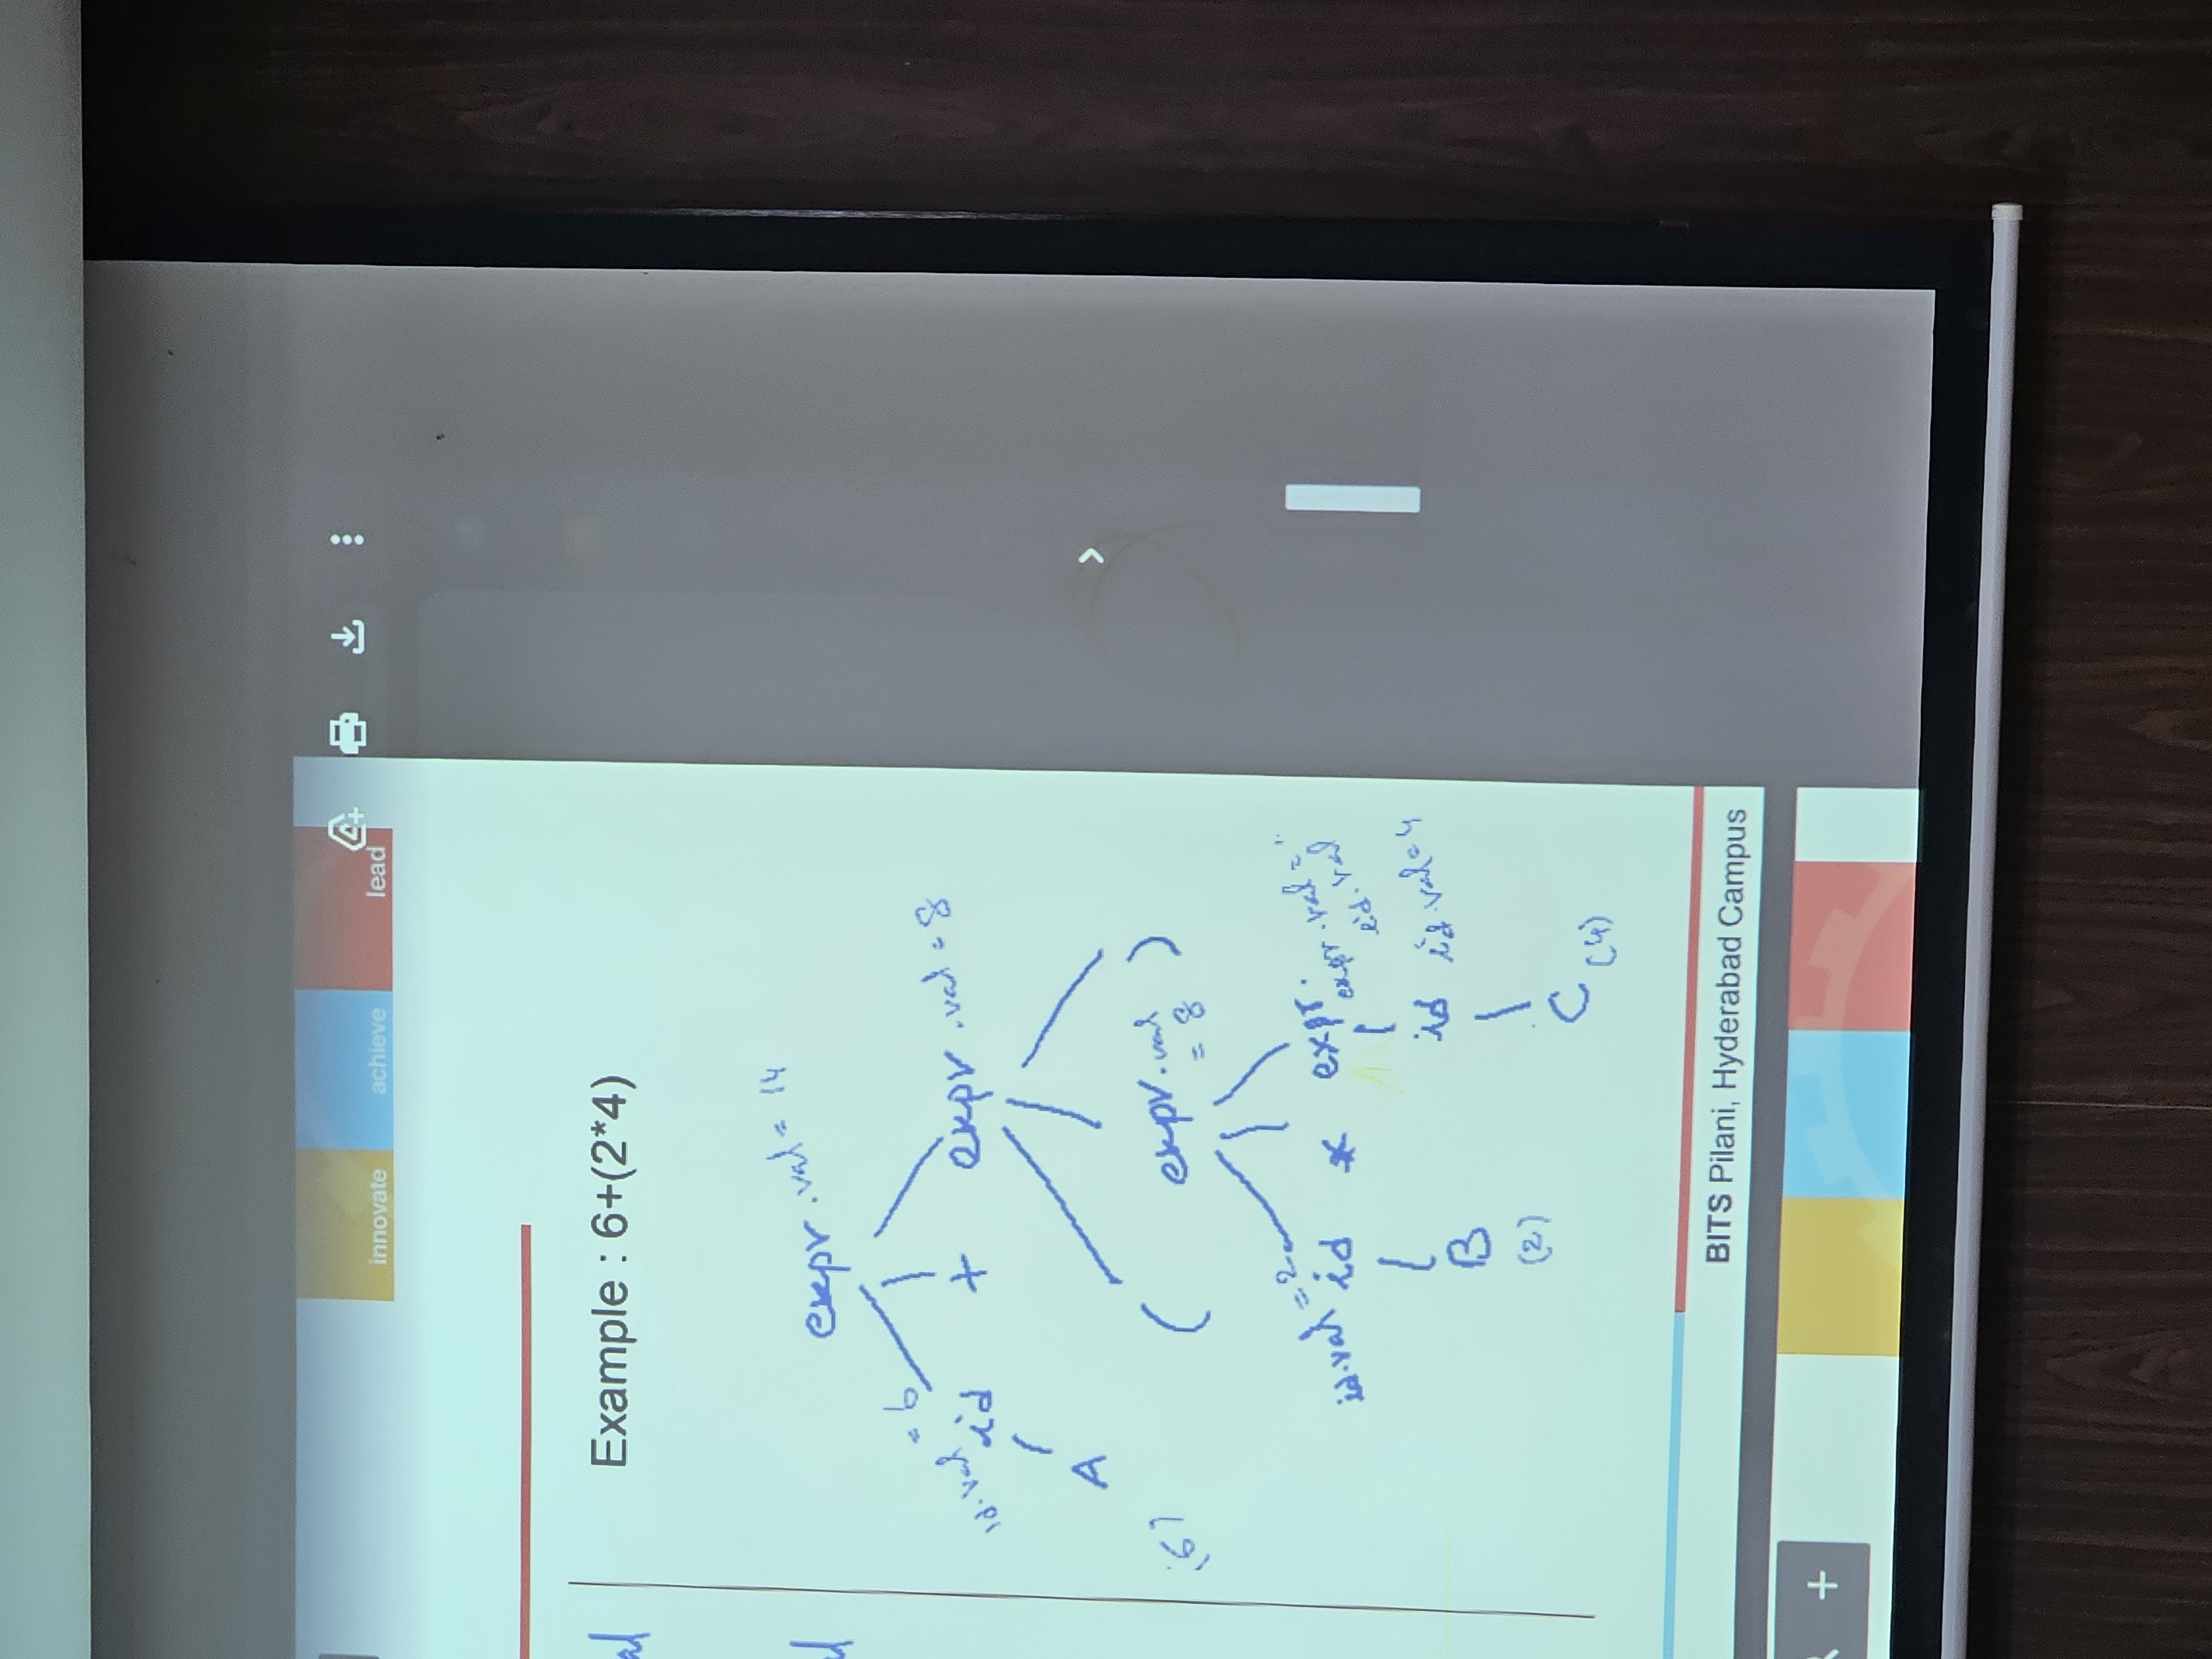 innovate achieve lead
al
Example : 6+(2*4)
expr.val = 14
id.val = 6
id + expr.val = 8
A
(6)
( expr.val )
= 8
id.val = 2
id * expr. expr.val =
id.val
id id.val=4
B
(2)
C (4)
BITS Pilani, Hyderabad Campus